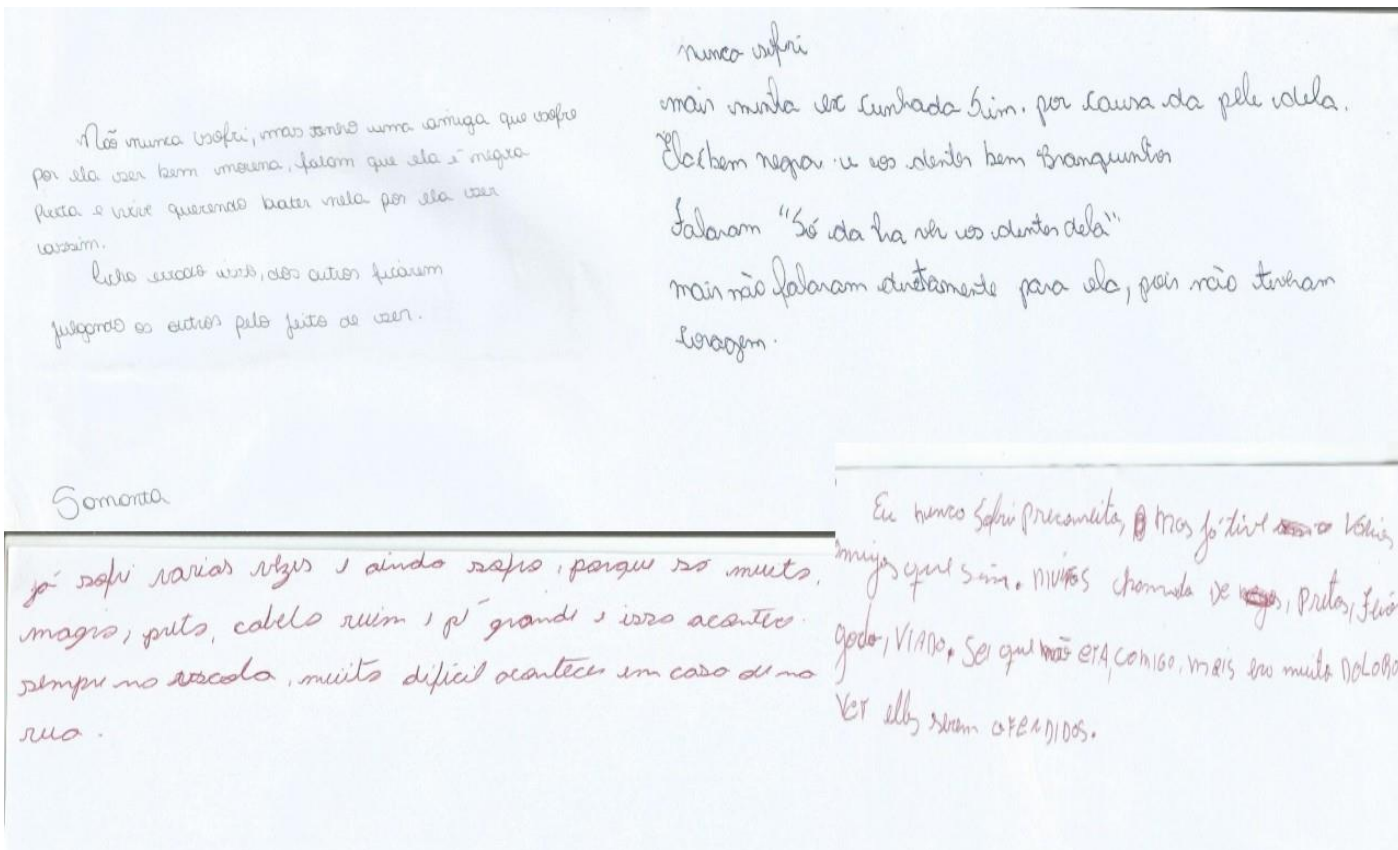 Não nunca sofri, mas tenho uma amiga que sofre
por ela ser bem morena, falam que ela é negra
Preta e vive querendo bater nela por ela ser
assim.
Acho errado isso, dos outros ficarem
julgando os outros pelo jeito de ser.
Somonta
nunca sofri
mais minha ex cunhada Sim. por causa da pele dela.
Ela é bem negra e os dentes bem Branquinhos
Falaram "Só da ha ver os dentes dela"
mais não falaram diretamente para ela, pois não tiveram
Coragem.
já sofri varias vezes e ainda sofro, porque so muito,
magro, preto, cabelo ruim e pé grande e isso acontece
sempre na escola, muito dificil acontecer em casa ou na
rua.
Eu nunco Sofri preconceito, mas já tive vários
amigos que sim. muitos chamada de, pretos, feio
godo, VIADO. Sei que não erA, comigo, mais era muito DOLORO
Ver elles serem oFENDIDOS.